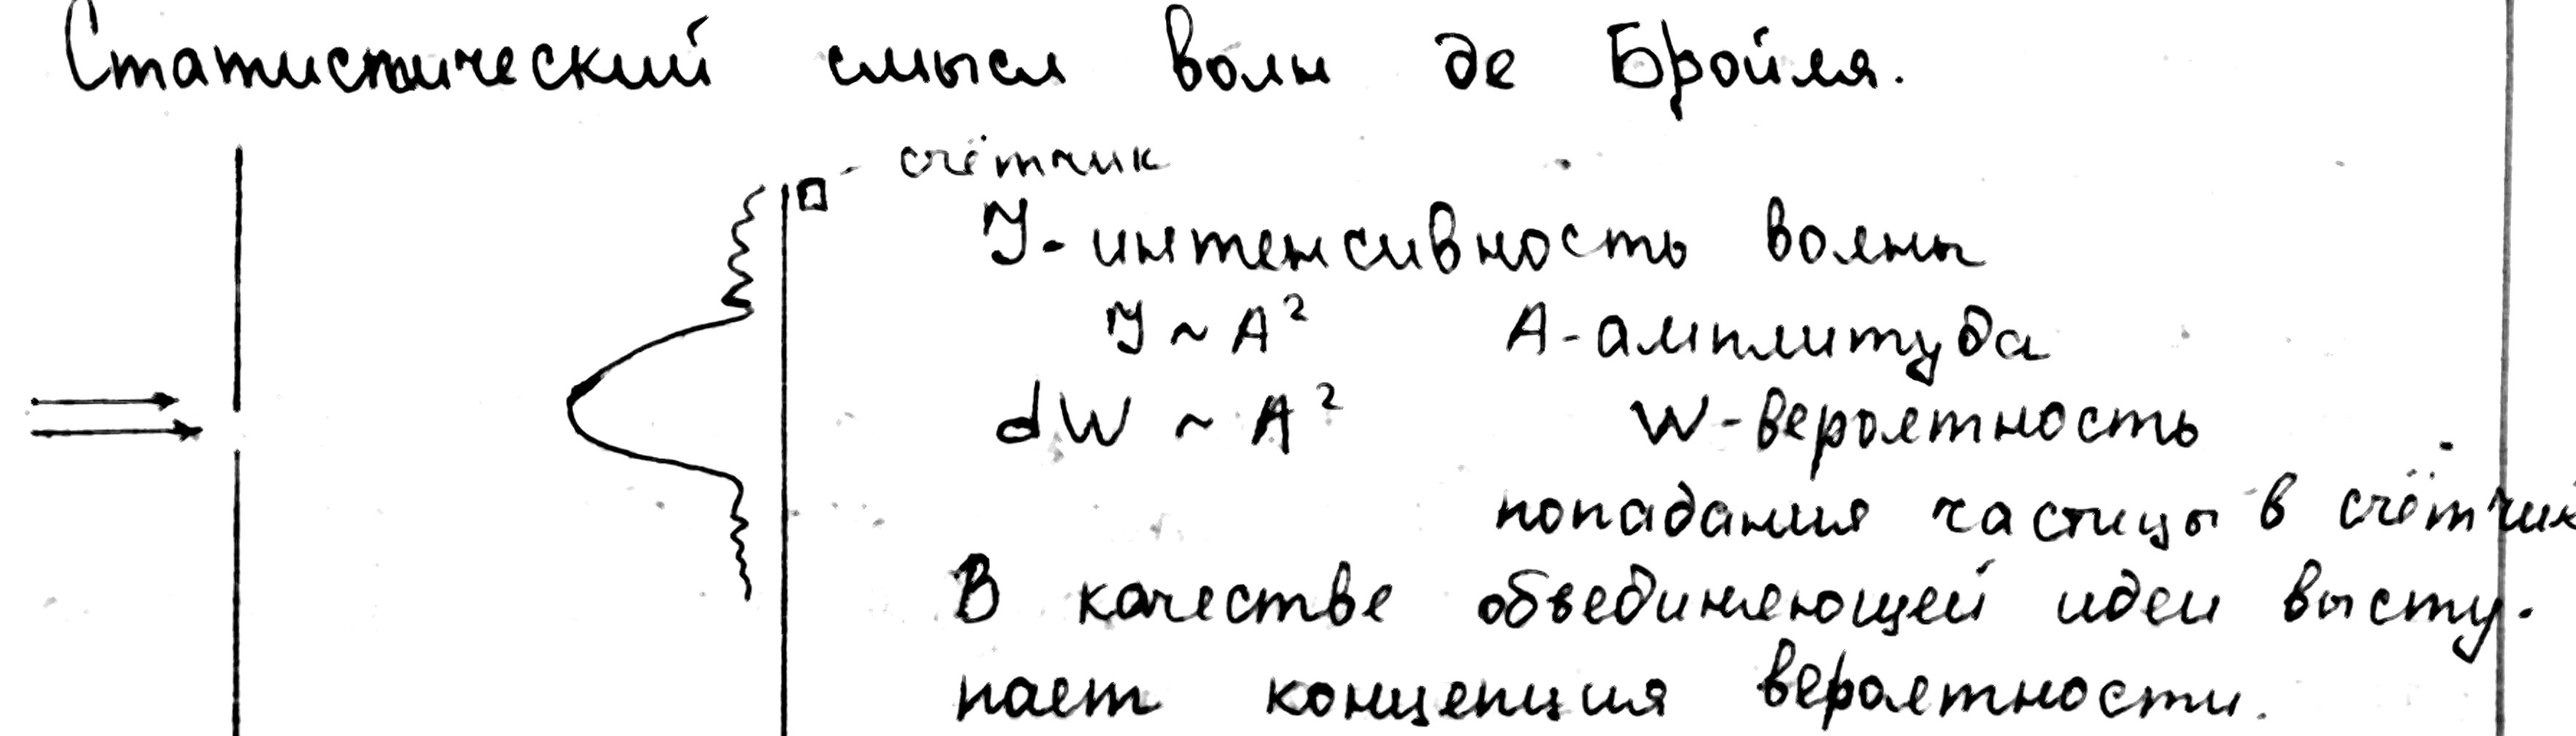 Статистический смысл волн де Бройля.
счётчик
J - интенсивность волны
J ~ A² A - амплитуда
dW ~ A² W - вероятность
попадания частицы в счётчик
В качестве объединяющей идеи высту-
пает концепция вероятности.